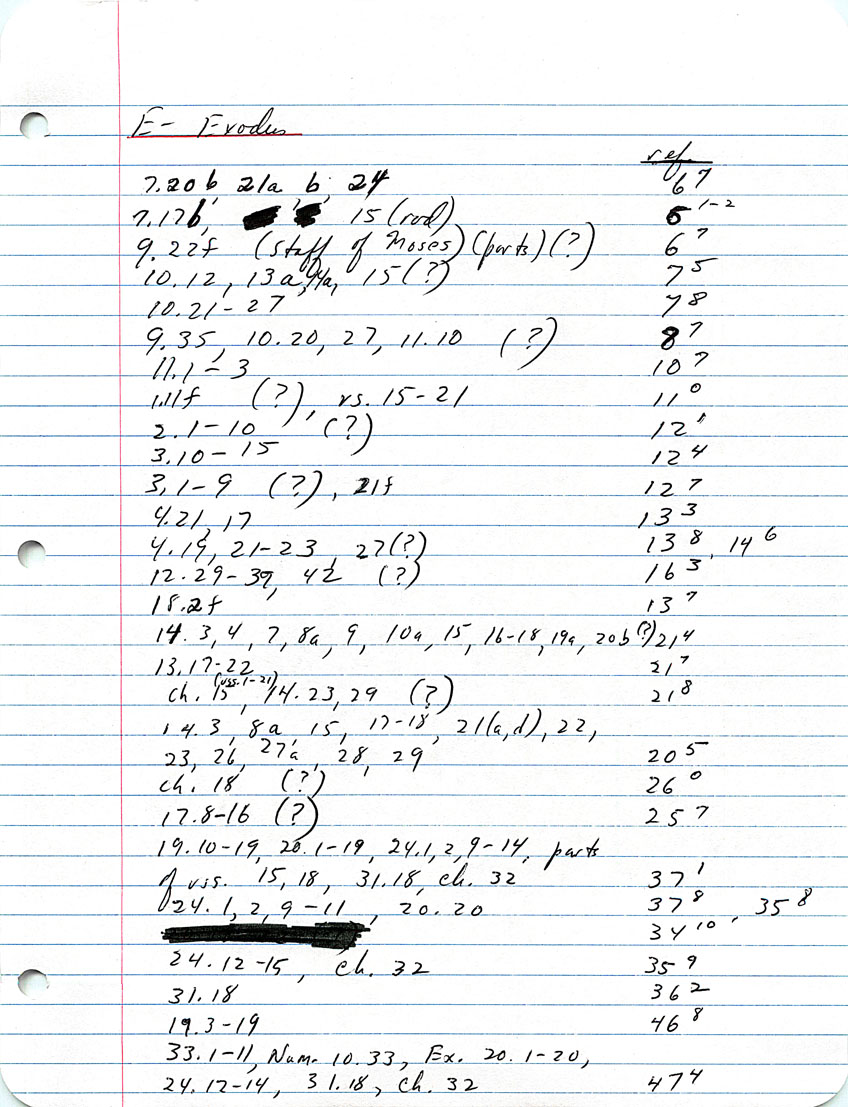 E- Exodus
ref.
7.20b, 21a, b, 24 6⁷
7.17b, 15 (rod) 6¹⁻²
9.22f (staff of Moses) (parts) (?) 6⁷
10.12, 13a, 14a, 15(?) 7⁵
10.21-27 7⁸
9.35, 10.20, 27, 11.10 (?) 8⁷
11.1-3 10⁷
1.11f (?), vs. 15-21 11⁰
2.1-10 (?) 12¹
3.10-15 12⁴
3.1-9 (?), 21f 12⁷
4.21, 17 13³
4.19, 21-23, 27(?) 13⁸, 14⁶
12.29-39, 42 (?) 16³
18.2f 13⁷
14. 3, 4, 7, 8a, 9, 10a, 15, 16-18, 19a, 20b(?) 21⁴
13.17-22 21⁷
ch. 15 (vss. 1-21), 14.23, 29 (?) 21⁸
14.3, 8a, 15, 17-18, 21(a,d), 22,
23, 26, 27a, 28, 29 20⁵
ch. 18 (?) 26⁰
17.8-16 (?) 25⁷
19.10-19, 20.1-19, 24.1, 2, 9-14, parts
of vss. 15, 18, 31.18, ch. 32 37¹
24.1, 2, 9-11, 20.20 37⁸, 35⁸
34¹⁰
24.12-15, ch. 32 35⁹
31.18 36²
19.3-19 46⁸
33.1-11, Num. 10.33, Ex. 20.1-20,
24.12-14, 31.18, ch. 32 47⁴